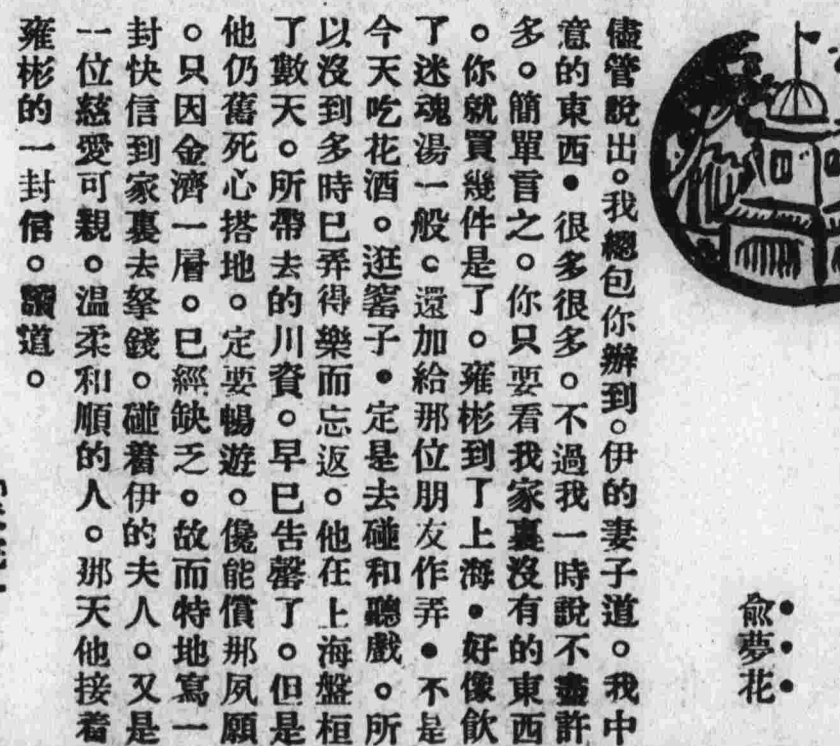 俞夢花
儘管說出。我總包你辦到。伊的妻子道。我中
意的東西。很多很多。不過我一時說不盡許
多。簡單言之。你只要看我家裏沒有的東西
。你就買幾件是了。雍彬到了上海。好像飮
了迷魂湯一般。還加給那位朋友作弄。不是
今天吃花酒。逛窰子。定是去碰和聽戲。所
以沒到多時已弄得樂而忘返。他在上海盤桓
了數天。所帶去的川資。早已告罄了。但是
他仍舊死心搭地。定要暢遊。儳能償那夙願
。只因金濟一層。已經缺乏。故而特地寫一
封快信到家裏去拏錢。碰着伊的夫人。又是
一位慈愛可親。温柔和順的人。那天他接着
雍彬的一封信。讀道。